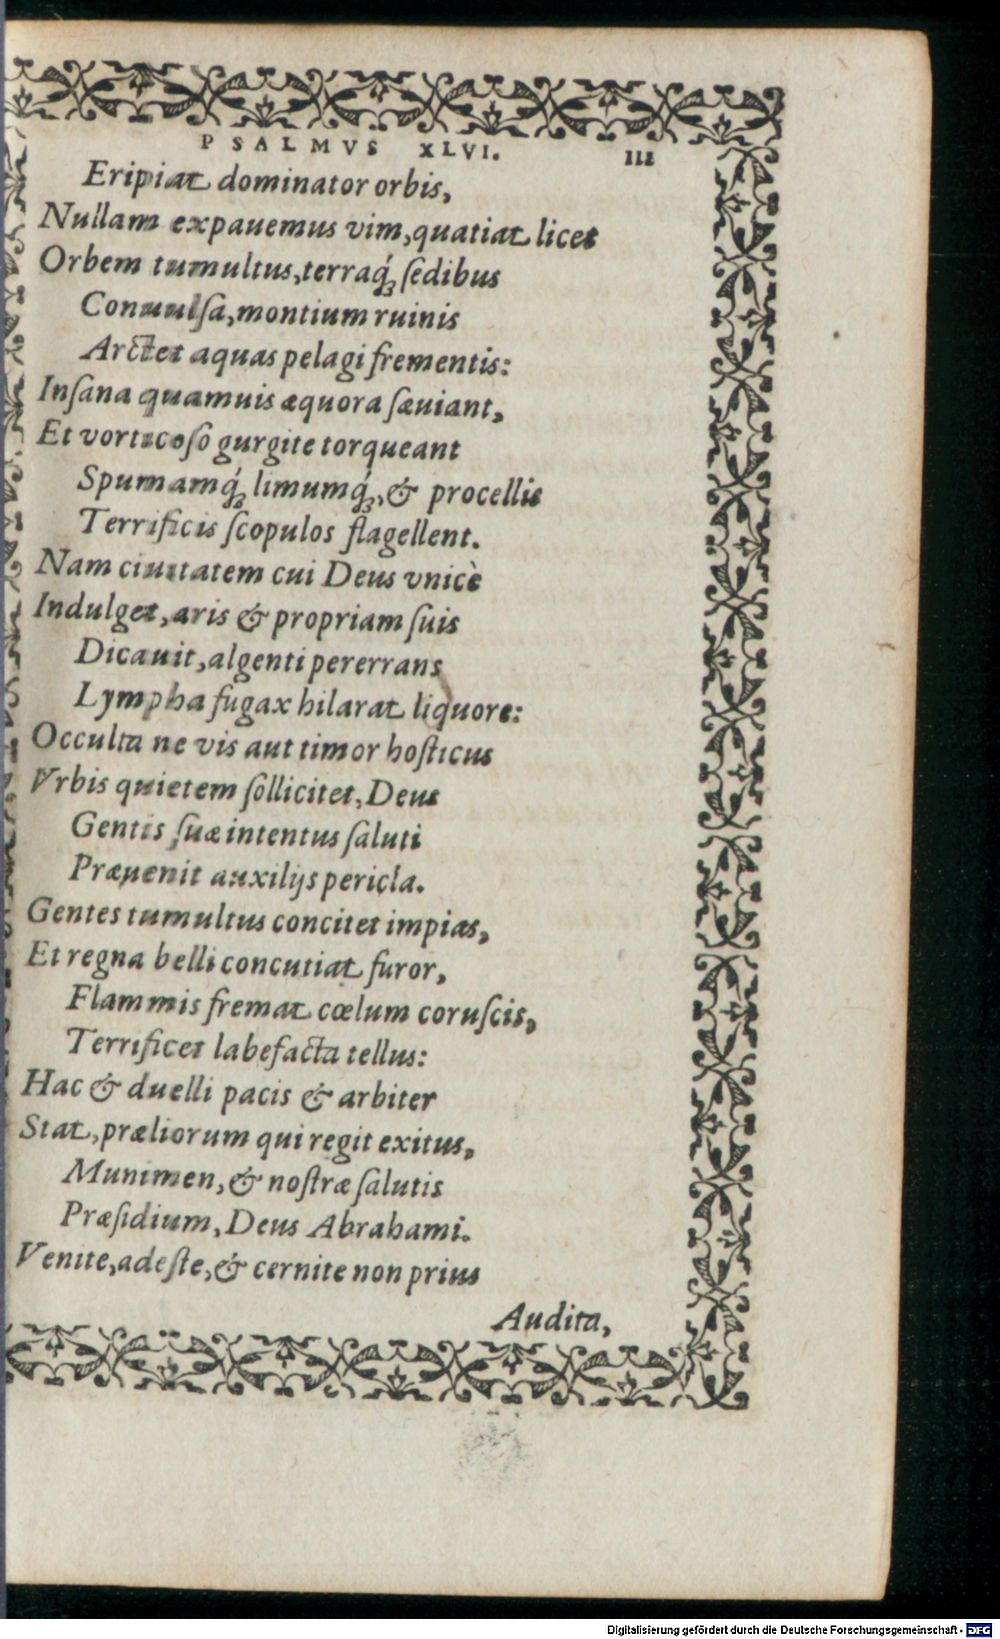 PSALMVS XLVI. III
Eripiat dominator orbis,
Nullam expauemus vim, quatiat licet
Orbem tumultus, terraq́ꝫ ſedibus
Conuulſa, montium ruinis
Arctet aquas pelagi frementis:
Inſana quamuis æquora ſæuiant,
Et vorticoſo gurgite torqueant
Spumamq́ꝫ limumq́ꝫ, & procellis
Terrificis ſcopulos flagellent.
Nam ciuitatem cui Deus vnicè
Indulget, aris & propriam ſuis
Dicauit, algenti pererrans
Lympha fugax hilarat liquore:
Occulta ne vis aut timor hoſticus
Vrbis quietem ſollicitet, Deus
Gentis ſuæ intentus ſaluti
Præuenit auxilijs pericla.
Gentes tumultus concitet impias,
Et regna belli concutiat furor,
Flammis fremat cœlum coruſcis,
Terrificet labefacta tellus:
Hac & duelli pacis & arbiter
Stat, præliorum qui regit exitus,
Munimen, & noſtræ ſalutis
Præſidium, Deus Abrahami.
Venite, adeſte, & cernite non prius
Audita,
Digitalisierung gefördert durch die Deutsche Forschungsgemeinschaft - DFG